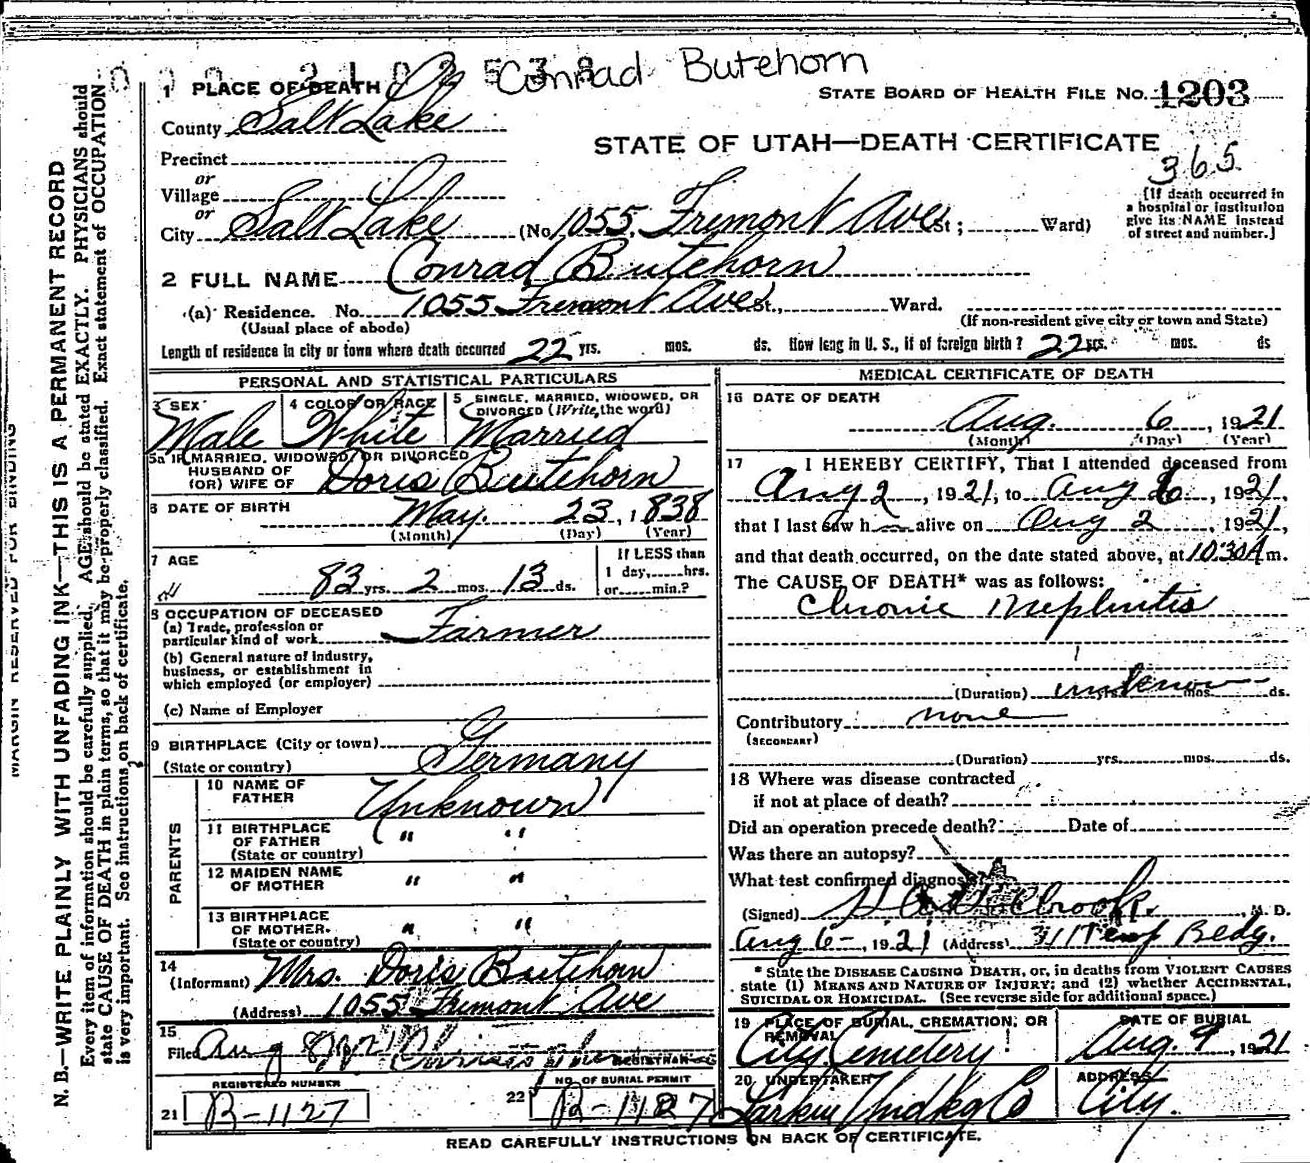 Conrad Butehorn
1 PLACE OF DEATH
STATE BOARD OF HEALTH FILE NO. 1203
County Salt Lake
STATE OF UTAH—DEATH CERTIFICATE
365
Precinct
or
Village
or
City Salt Lake (No 1055 Fremont Ave St; Ward)
[If death occurred in
a hospital or institution
give its NAME instead
of street and number.]
2 FULL NAME Conrad Butehorn
(a) Residence. No. 1055 Fremont Ave St., Ward.
(Usual place of abode)
(If non-resident give city or town and State)
Length of residence in city or town where death occurred 22 yrs. mos. ds. How long in U. S., if of foreign birth? 22 yrs. mos. ds
PERSONAL AND STATISTICAL PARTICULARS
3 SEX Male
4 COLOR OR RACE White
5 SINGLE, MARRIED, WIDOWED, OR
DIVORCED (Write the word)
Married
5a IF MARRIED, WIDOWED, OR DIVORCED
HUSBAND OF
(OR) WIFE OF Doris Butehorn
6 DATE OF BIRTH May. 23, 1838
(Month) (Day) (Year)
7 AGE
83 yrs. 2 mos. 13 ds.
If LESS than
1 day, hrs.
or min.?
8 OCCUPATION OF DECEASED
(a) Trade, profession or
particular kind of work Farmer
(b) General nature of industry,
business, or establishment in
which employed (or employer)
(c) Name of Employer
9 BIRTHPLACE (City or town)
(State or country) Germany
PARENTS
10 NAME OF
FATHER Unknown
11 BIRTHPLACE
OF FATHER
(State or country) " "
12 MAIDEN NAME
OF MOTHER " "
13 BIRTHPLACE
OF MOTHER.
(State or country) " "
14
(Informant) Mrs. Doris Butehorn
(Address) 1055 Fremont Ave
15
Filed Aug 8
REGISTRAR
REGISTERED NUMBER
21 B-1127
NO. OF BURIAL PERMIT
22 B-1127
MEDICAL CERTIFICATE OF DEATH
16 DATE OF DEATH
Aug. 6, 1921
(Month) (Day) (Year)
17 I HEREBY CERTIFY, That I attended deceased from
Aug 2, 1921, to Aug 6, 1921,
that I last saw h alive on Aug 2, 1921,
and that death occurred, on the date stated above, at 10:30 A m.
The CAUSE OF DEATH* was as follows:
Chronic Nephritis
(Duration) unknown mos. ds.
Contributory none
(SECONDARY)
(Duration) yrs. mos. ds.
18 Where was disease contracted
if not at place of death?
Did an operation precede death? Date of
Was there an autopsy?
What test confirmed diagnosis?
(Signed) , M. D.
Aug 6-, 1921 (Address) 311 Temp Bedg.
* State the DISEASE CAUSING DEATH, or, in deaths from VIOLENT CAUSES
state (1) MEANS AND NATURE OF INJURY; and (2) whether ACCIDENTAL,
SUICIDAL OR HOMICIDAL. (See reverse side for additional space.)
19 PLACE OF BURIAL, CREMATION, OR
REMOVAL
City Cemetery
DATE OF BURIAL
Aug. 9, 1921
20 UNDERTAKER
Larkin Undkg Co
ADDRESS
City.
READ CAREFULLY INSTRUCTIONS ON BACK OF CERTIFICATE.
MARGIN RESERVED FOR BINDING
N. B.—WRITE PLAINLY WITH UNFADING INK—THIS IS A PERMANENT RECORD
Every item of information should be carefully supplied. AGE should be stated EXACTLY. PHYSICIANS should
state CAUSE OF DEATH in plain terms, so that it may be properly classified. Exact statement of OCCUPATION
is very important. See instructions on back of certificate.